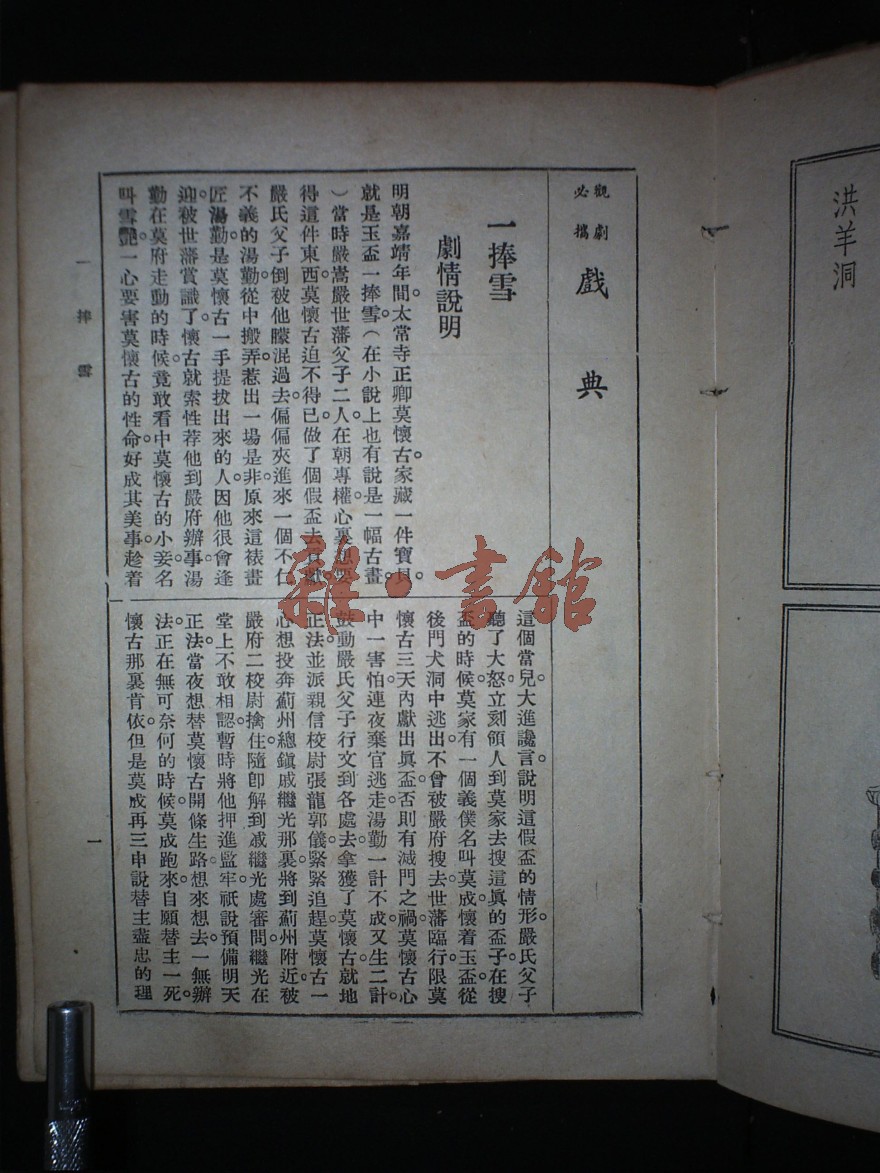 洪羊洞
觀劇
必攜
戲典
一捧雪
劇情說明
明朝嘉靖年間。太常寺正卿莫懷古。家藏一件寶貝。
就是玉盃一捧雪。(在小說上也有說是一幅古畫。
)當時嚴嵩嚴世藩父子二人。在朝專權。心裏想要
得這件東西。莫懷古迫不得已。做了個假盃去貢獻。
嚴氏父子倒被他朦混過去。偏偏夾進來一個不仁
不義的湯勤。從中搬弄。惹出一場是非。原來這裱畫
匠湯勤。是莫懷古一手提拔出來的人。因他很會逢
迎。被世藩賞識了。懷古就索性荐他到嚴府辦事。湯
勤在莫府走動的時候。竟敢看中莫懷古的小妾名
叫雪艷。一心要害莫懷古的性命。好成其美事。趁着
這個當兒。大進讒言。說明這假盃的情形。嚴氏父子
聽了大怒。立刻領人到莫家去搜這眞的盃子。在搜
盃的時候。莫家有一個義僕名叫莫成。懷着玉盃。從
後門犬洞中逃出。不曾被嚴府搜去。世藩臨行。限莫
懷古三天內獻出眞盃。否則有滅門之禍。莫懷古心
中一害怕。連夜棄官逃走。湯勤一計不成。又生二計。
鼓動嚴氏父子行文到各處去。拿獲了莫懷古。就地
正法。並派親信校尉張龍郭儀。緊緊追趕。莫懷古一
心想投奔薊州總鎭戚繼光那裏。將到薊州附近。被
嚴府二校尉擒住。隨卽解到戚繼光處審問。繼光在
堂上不敢相認。暫時將他押進監牢。祇說預備明天
正法。當夜想替莫懷古開條生路。想來想去。一無辦
法。正在無可奈何的時候。莫成跑來。自願替主一死。
懷古那裏肯依。但是莫成再三申說替主盡忠的理
一捧雪
一
雜·書館